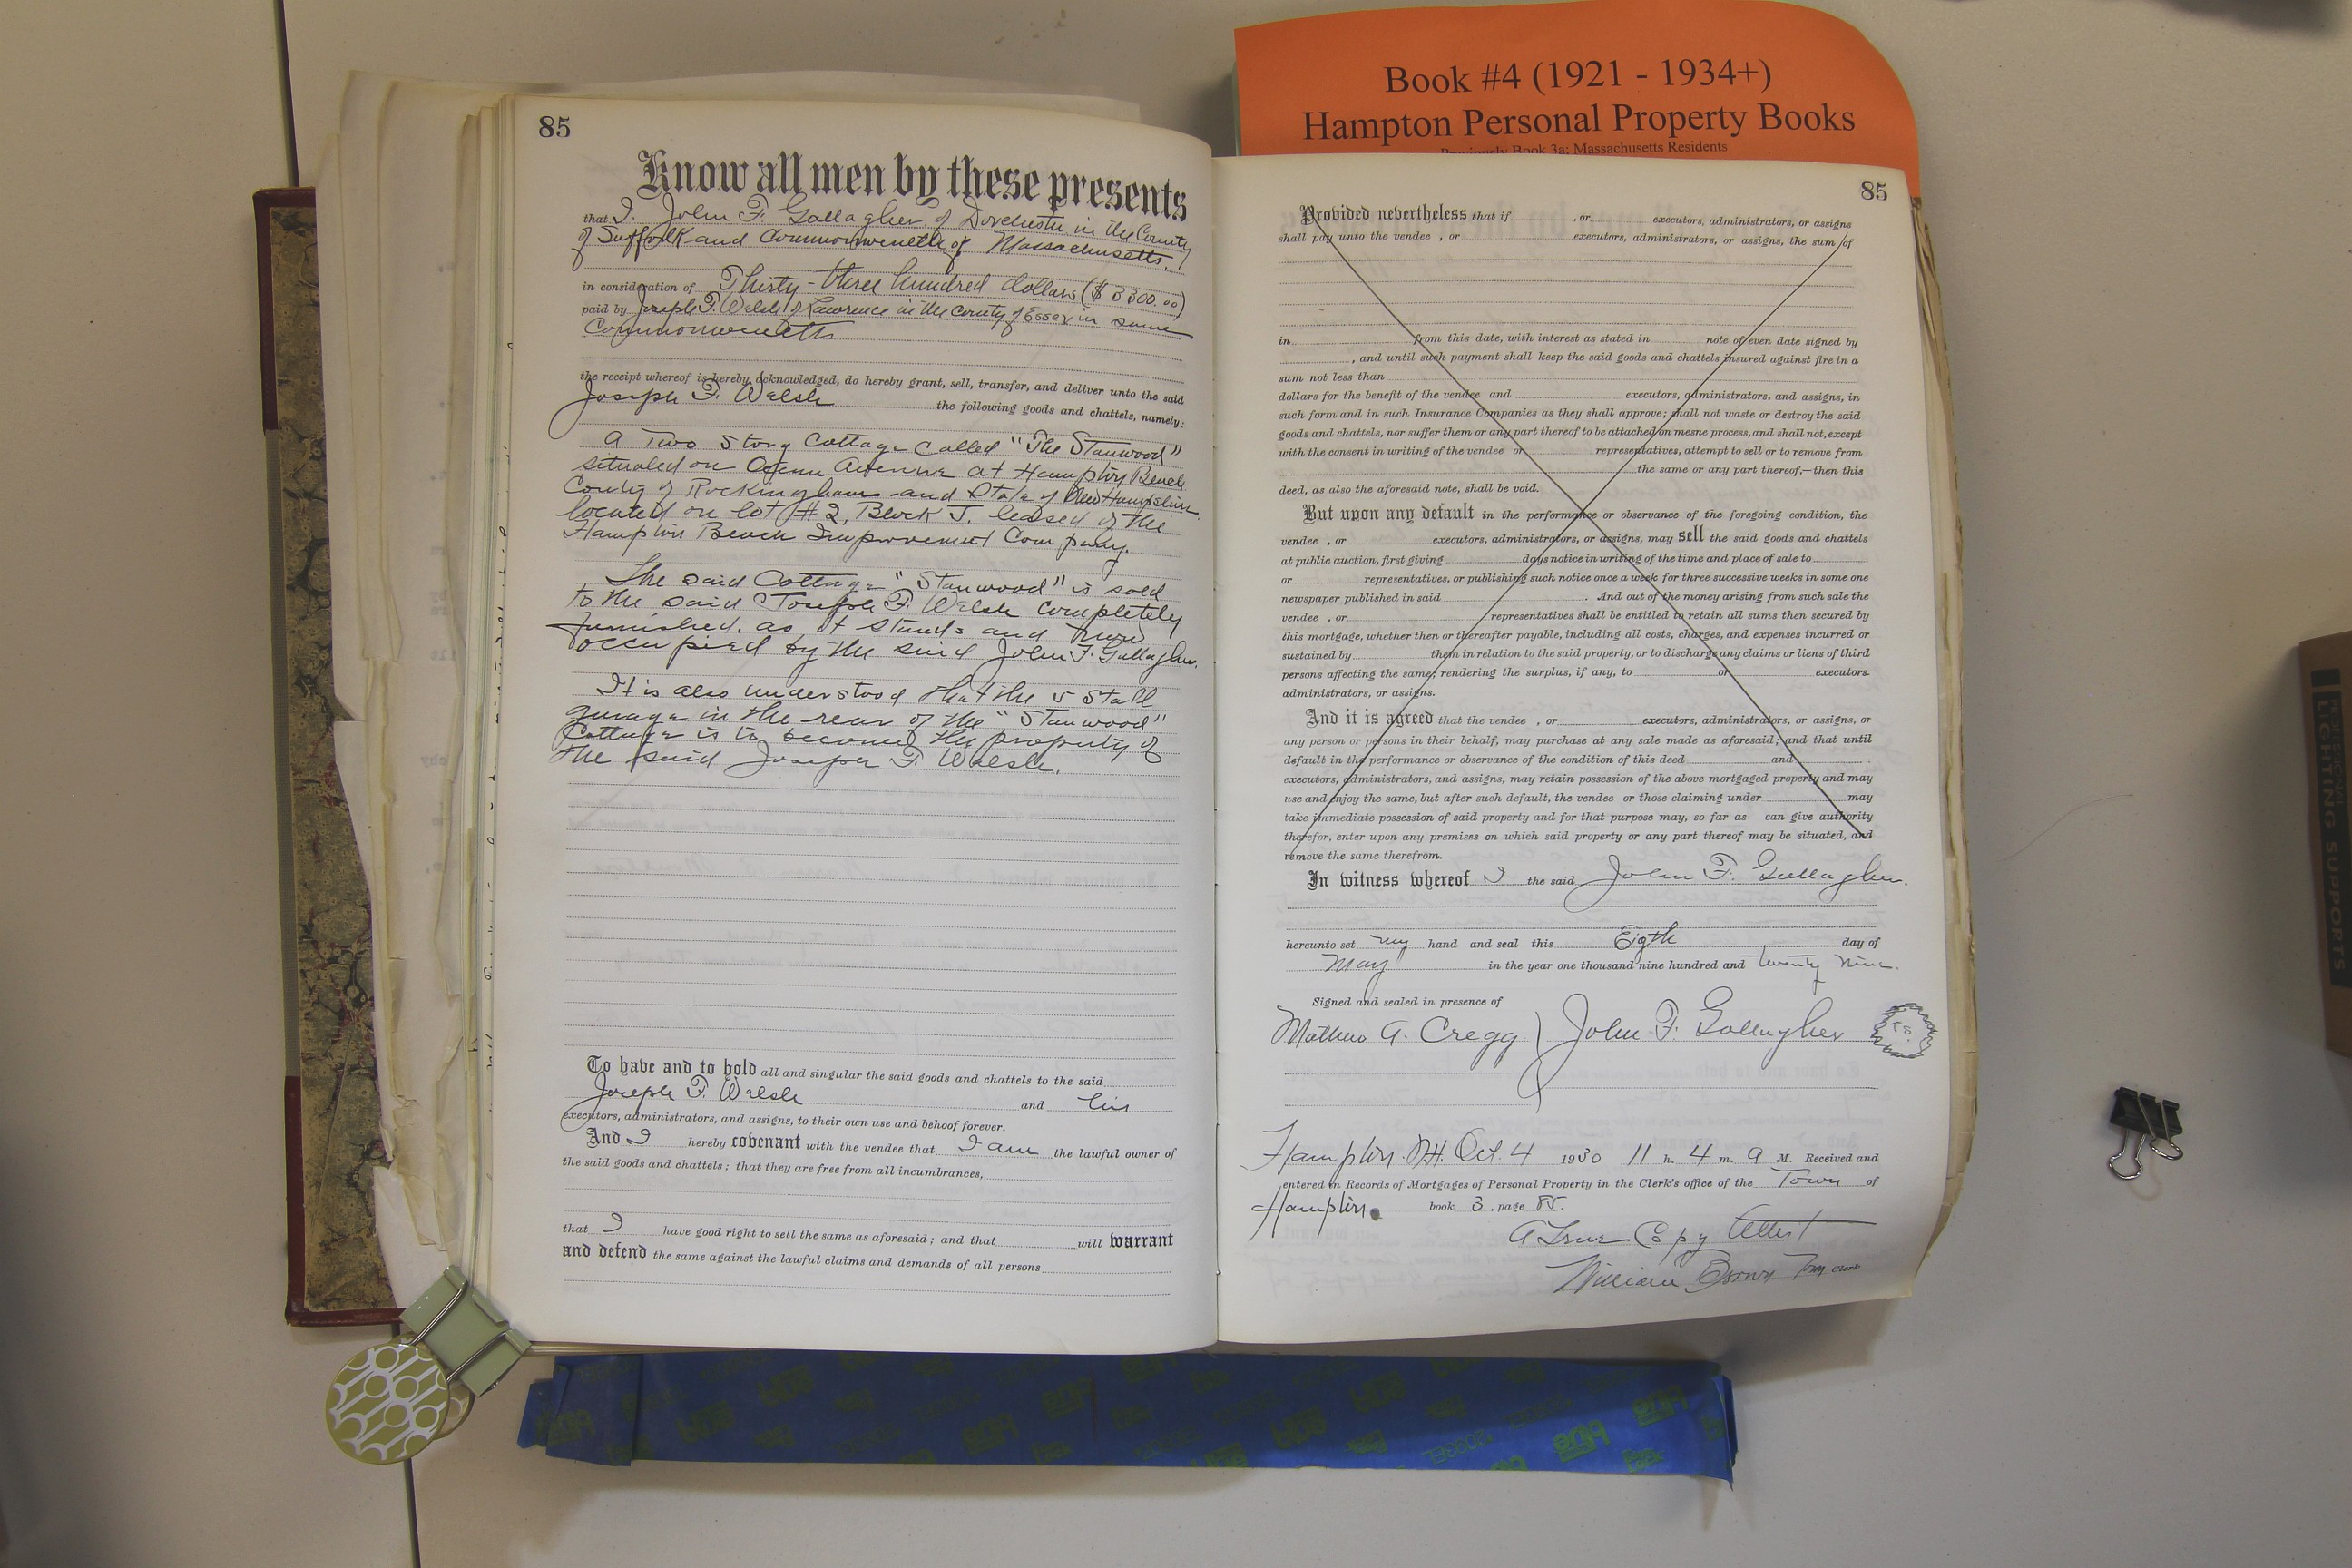 Book #4 (1921 - 1934+)
Hampton Personal Property Books
Previously Book 3a: Massachusetts Residents
85
Know all men by these presents
that I. John F. Gallagher of Dorchester in the County
of Suffolk and Commonwealth of Massachusetts,
in consideration of Thirty-three hundred dollars ($3300.00)
paid by Joseph F. Welsh of Lawrence in the County of Essex in same
Commonwealth
the receipt whereof is hereby acknowledged, do hereby grant, sell, transfer, and deliver unto the said
Joseph F. Welsh the following goods and chattels, namely:
A Two Story Cottage Called "The Stanwood"
situated on Ocean Avenue at Hampton Beach
County of Rockingham and State of New Hampshire
located on lot #2, Block J. leased of the
Hampton Beach Improvement Company.
The said Cottage "Stanwood" is sold
to the said Joseph F. Welsh completely
furnished. as it stands and now
occupied by the said John F. Gallagher.
It is also understood that the 5 Stall
garage in the rear of the "Stanwood"
Cottage is to become the property of
the said Joseph F. Welsh.
To have and to hold all and singular the said goods and chattels to the said
Joseph F. Welsh and his
executors, administrators, and assigns, to their own use and behoof forever.
And I hereby covenant with the vendee that I am the lawful owner of
the said goods and chattels; that they are free from all incumbrances,
that I have good right to sell the same as aforesaid; and that will warrant
and defend the same against the lawful claims and demands of all persons
85
Provided nevertheless that if , or executors, administrators, or assigns
shall pay unto the vendee , or executors, administrators, or assigns, the sum of
in from this date, with interest as stated in note of even date signed by
, and until such payment shall keep the said goods and chattels insured against fire in a
sum not less than
dollars for the benefit of the vendee and executors, administrators, and assigns, in
such form and in such Insurance Companies as they shall approve; shall not waste or destroy the said
goods and chattels, nor suffer them or any part thereof to be attached on mesne process, and shall not, except
with the consent in writing of the vendee or representatives, attempt to sell or to remove from
the same or any part thereof,—then this
deed, as also the aforesaid note, shall be void.
But upon any default in the performance or observance of the foregoing condition, the
vendee , or executors, administrators, or assigns, may sell the said goods and chattels
at public auction, first giving days notice in writing of the time and place of sale to
or representatives, or publishing such notice once a week for three successive weeks in some one
newspaper published in said . And out of the money arising from such sale the
vendee , or representatives shall be entitled to retain all sums then secured by
this mortgage, whether then or thereafter payable, including all costs, charges, and expenses incurred or
sustained by them in relation to the said property, or to discharge any claims or liens of third
persons affecting the same; rendering the surplus, if any, to or executors.
administrators, or assigns.
And it is agreed that the vendee , or executors, administrators, or assigns, or
any person or persons in their behalf, may purchase at any sale made as aforesaid; and that until
default in the performance or observance of the condition of this deed and
executors, administrators, and assigns, may retain possession of the above mortgaged property and may
use and enjoy the same, but after such default, the vendee or those claiming under may
take immediate possession of said property and for that purpose may, so far as can give authority
therefor, enter upon any premises on which said property or any part thereof may be situated, and
remove the same therefrom.
In witness whereof I the said John F. Gallagher.
hereunto set my hand and seal this Eigth day of
May in the year one thousand nine hundred and twenty nine.
Signed and sealed in presence of
Mathew A. Cregg John F. Gallagher
Hampton N.H. Oct. 4 1930 11 h. 4 m. a M. Received and
entered in Records of Mortgages of Personal Property in the Clerk's office of the Town of
Hampton. book 3. page 85.
A True Copy Attest
William Brown Town Clerk
LIGHTING SUPPORTS